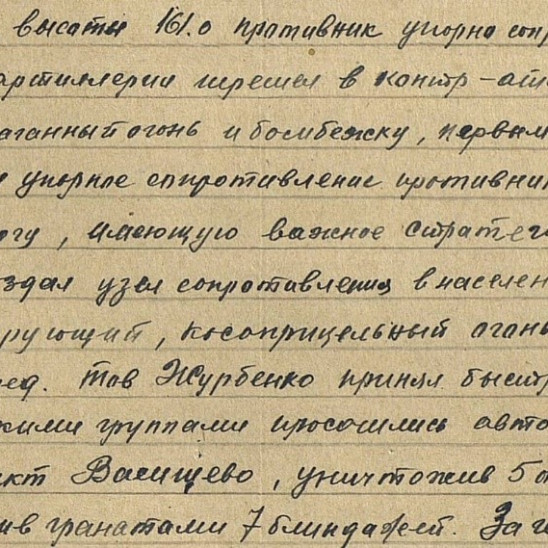 высоты 161.0 противник упорно сопр
артиллерии перешел в контр-ата
аганный огонь и бомбежку, первым
упорное сопротивление противник
огу, имеющую важное стратег
здал узел сопротивления в населен
рующий, косоприцельный огань
ед. Тов Журбенко принял быстр
кими группами просочились авто
нкт Васищево, уничтожив 5 о
ив гранатами 7 блиндажей. За